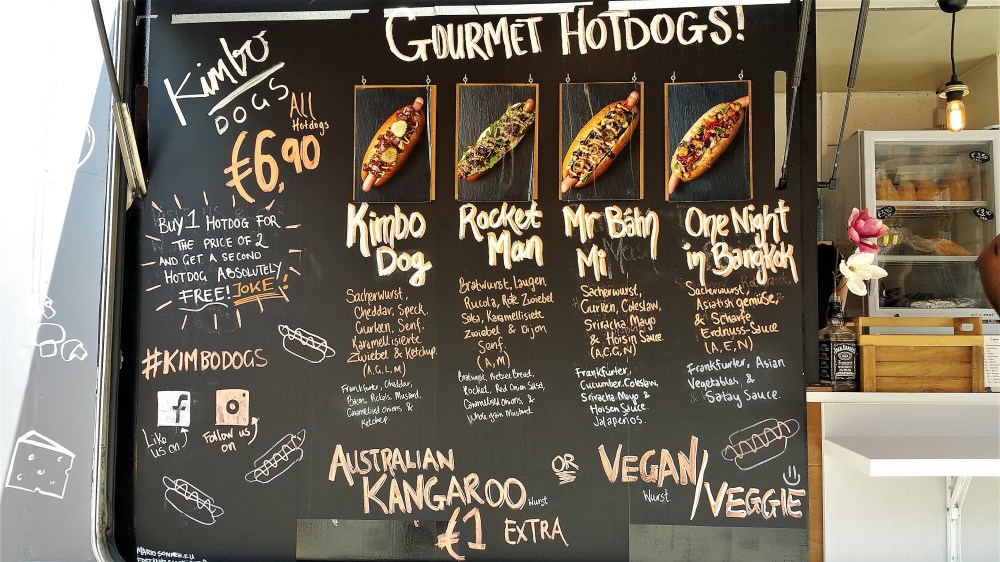 GOURMET HOTDOGS!
Kimbo
DOGS
All
Hotdogs
€6,90
BUY 1 HOTDOG FOR
THE PRICE OF 2
AND GET A SECOND
HOTDOG ABSOLUTELY
FREE! JOKE!
#KIMBODOGS
Like
us on
Follow us
on
Kimbo
Dog
Sacherwurst,
Cheddar, Speck,
Gurken, Senf,
Karamellisierte
Zwiebel & Ketchup.
(A,G,L,M)
Frankfurter, Cheddar,
Bacon, Pickels, Mustard,
Caramelised Onions, &
Ketchup
Rocket
Man
Bratwurst, Laugen,
Rucola, Rote Zwiebel
Salsa, Karamellisierte
Zwiebel & Dijon
Senf.
(A,M)
Bratwurst, Pretzel Bread,
Rocket, Red Onion Salsa,
Caramelised Onions, &
Whole grain Mustard
Mr Bánh
Mi
Sacherwurst,
Gurken, Coleslaw,
Sriracha Mayo
& Hoisin Sauce
(A,C,G,N)
Frankfurter,
Cucumber, Coleslaw,
Sriracha Mayo &
Hoisen Sauce.
Jalapeños.
One Night
in Bangkok
Sacherwurst,
Asiatish gemüse
& Scharfe
Erdnuss-Sauce
(A,E,N)
Frankfurter, Asian
Vegetables &
Satay Sauce.
AUSTRALIAN
KANGAROO wurst
OR
VEGAN/
wurst
VEGGIE
€1 EXTRA
MARIO SOMMER.EU
JACK DANIEL'S